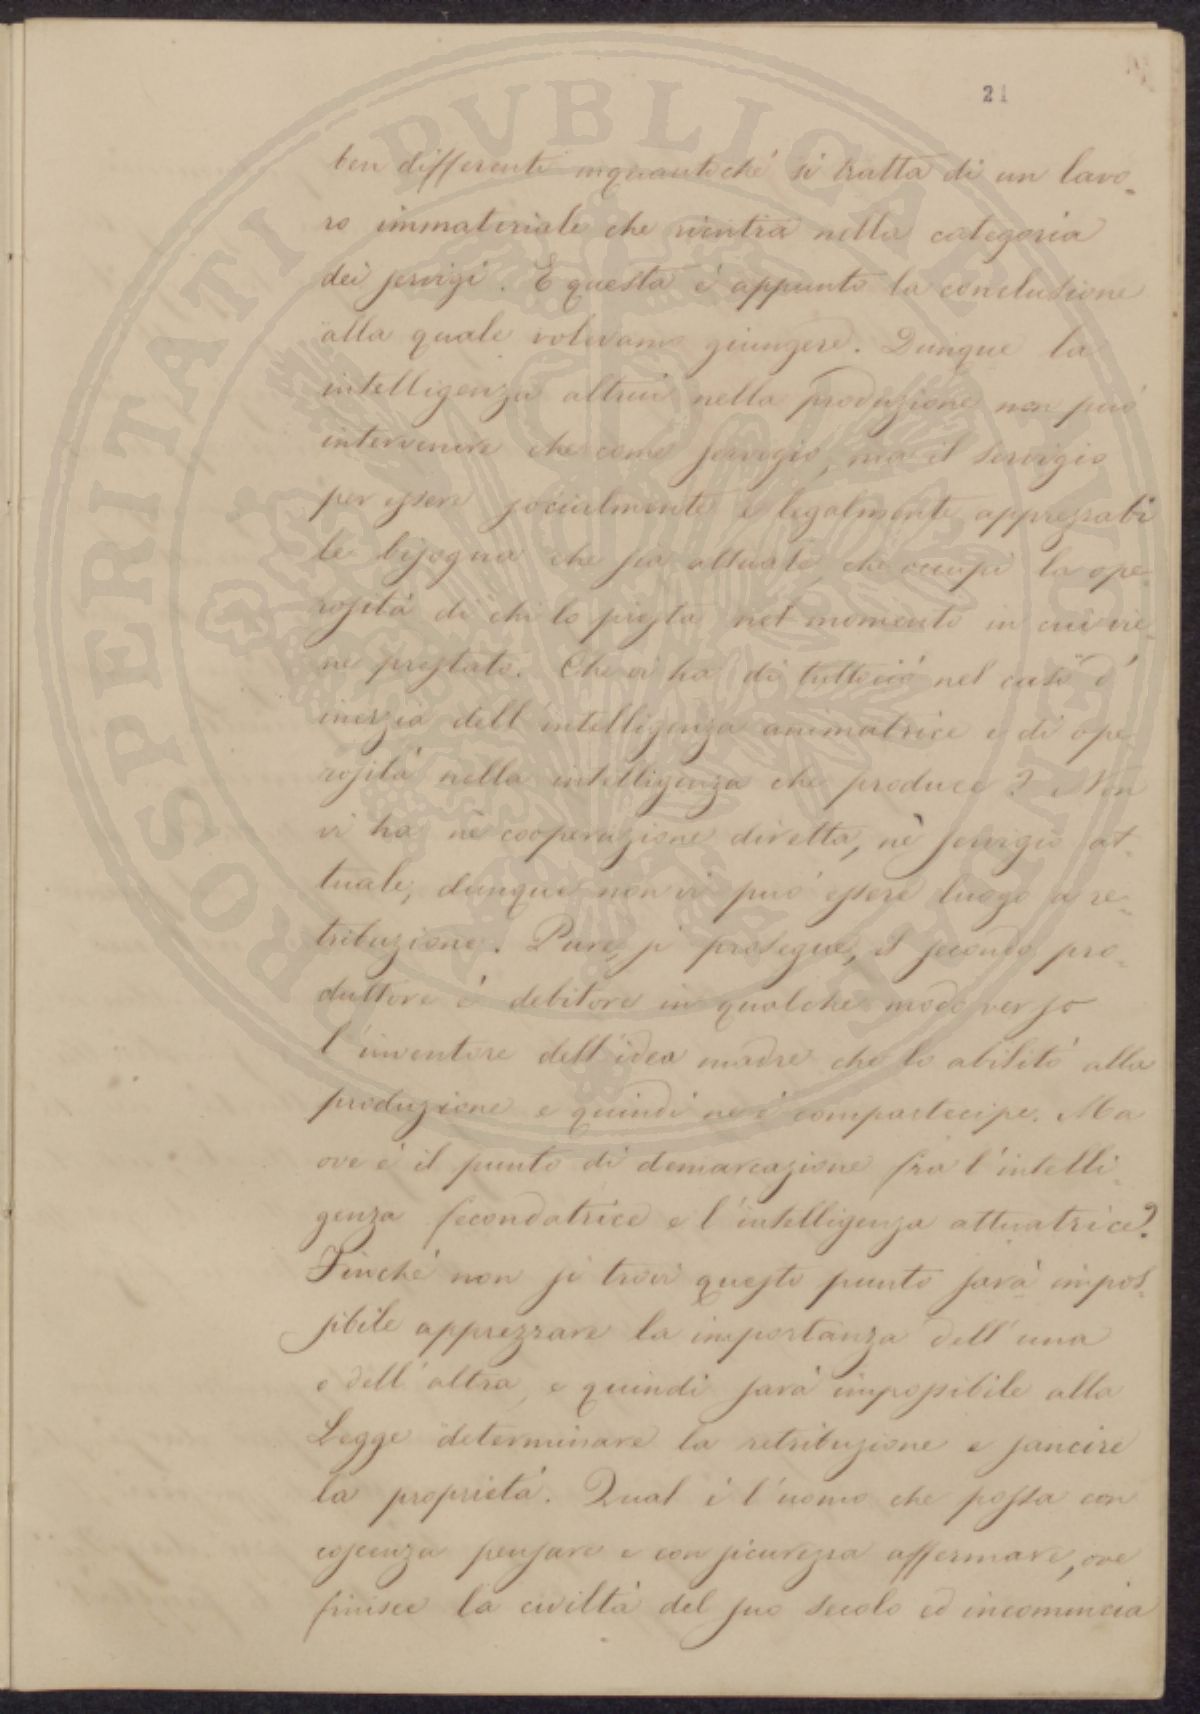 21
PROSPERITATI PVBLICAE
ben differenti inquantoché si tratta di un lavo-
ro immateriale che rientra nella categoria
dei servigi. E questa é appunto la conclusione
alla quale volevamo giungere. Dunque la
intelligenza altrui nella produzione non puó
intervenire che come servigio, ma il servigio
per essere socialmente e legalmente apprezzabi
le bisogna che sia attuale, che occupi la ope-
rositá di chi lo presta nel momento in cui vie-
ne prestato. Che vi ha di tutto ció nel caso d'
inerzia dell'intelligenza animatrice e di ope-
rositá nella intelligenza che produce? Non
vi ha nè cooperazione diretta, nè servigio at-
tuale, dunque non vi puó essere luogo a re-
tribuzione. Pure, si prosegue, il secondo pro-
duttore é debitore in qualche modo verso
l'inventore dell'idea madre che lo abilitó alla
produzione e quindi ne é compartecipe. Ma
ove é il punto di demarcazione fra l'intelli-
genza fecondatrice e l'intelligenza attuatrice?
Finché non si trovi questo punto sará impos-
sibile apprezzare la importanza dell'una
e dell'altra, e quindi sará impossibile alla
Legge determinare la retribuzione e sancire
la proprietá. Qual é l'uomo che possa con
coscienza pensare e con sicurezza affermare, ove
finisce la civiltá del suo secolo ed incomincia